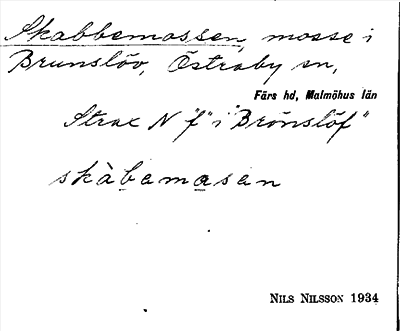 Skabbemossen, mosse i
Brunslöv, Östraby sn,
Färs hd, Malmöhus län
Strax N "f" i "Brönslöf"
skàbemasen
NILS NILSSON 1934